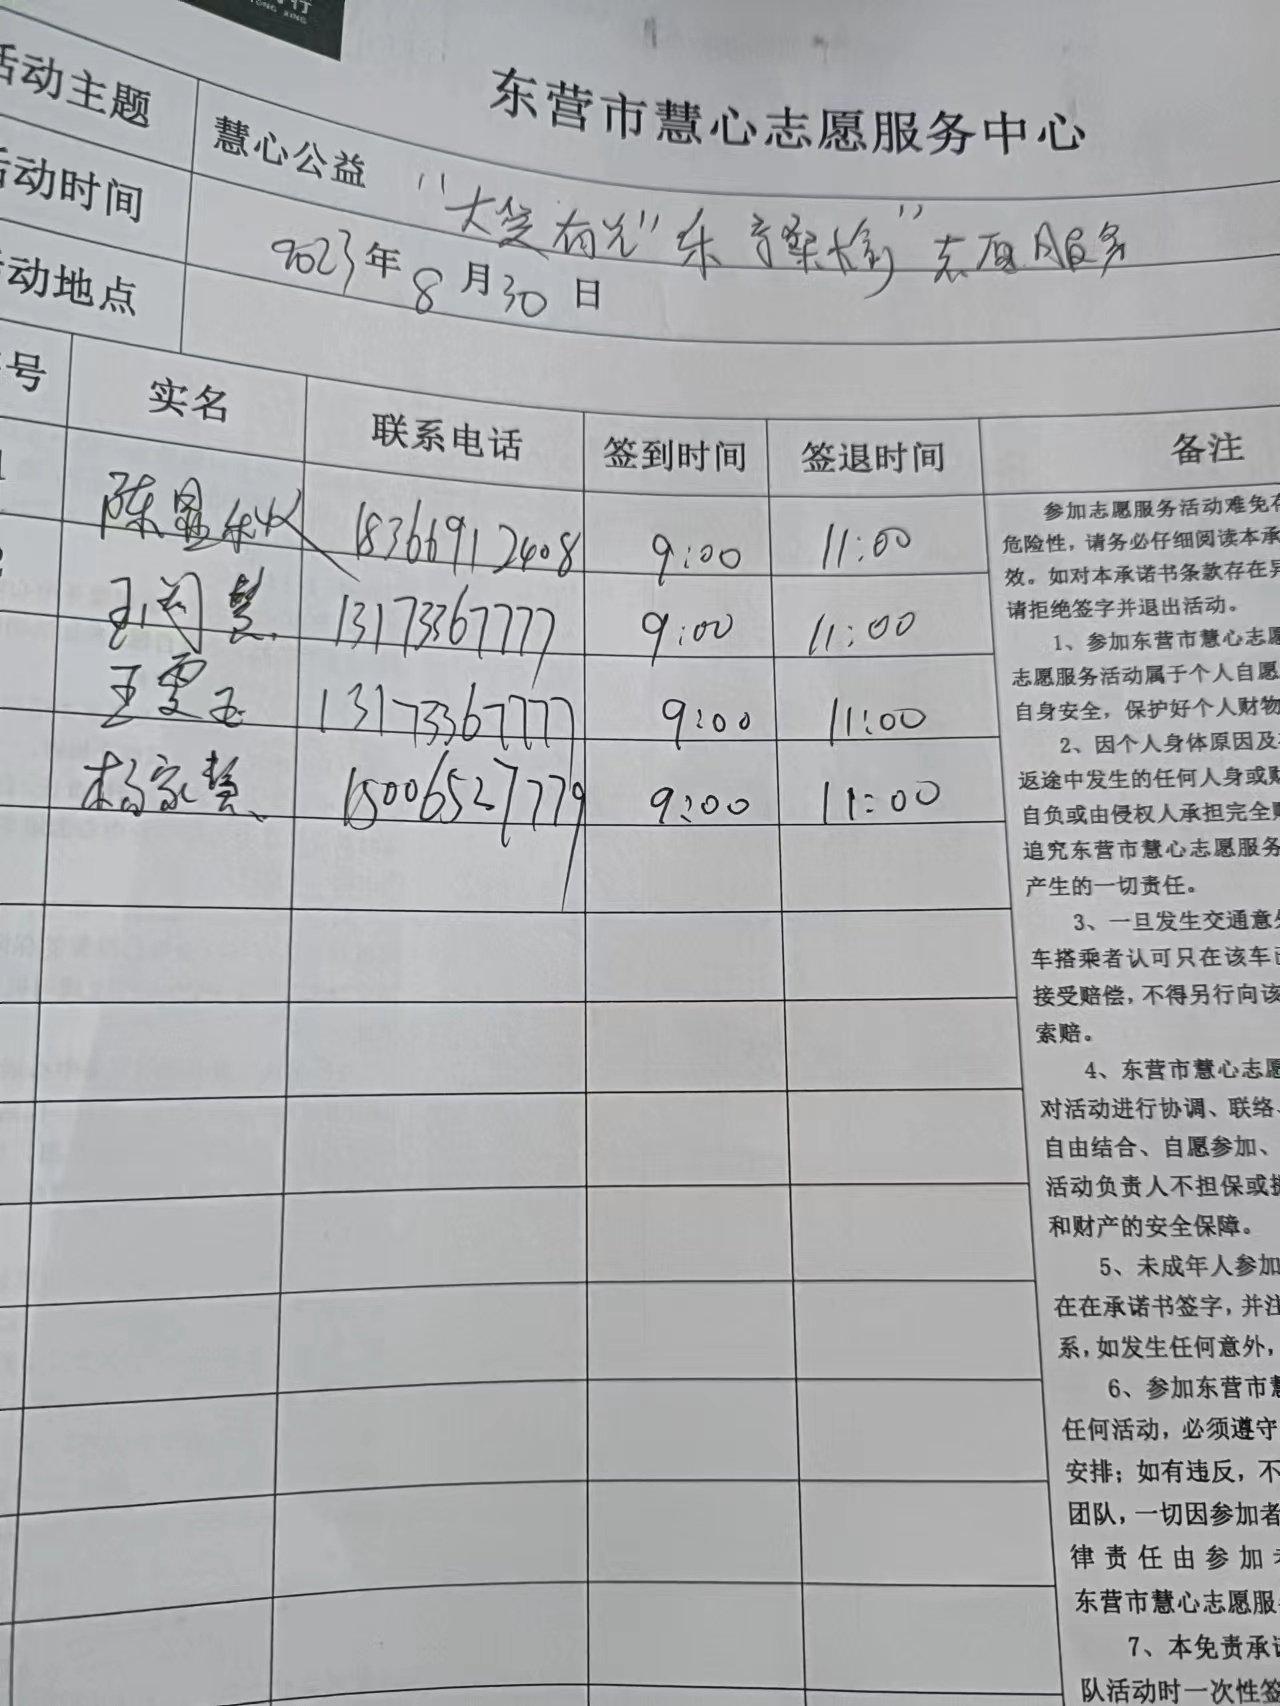 TONG XING
东营市慧心志愿服务中心
活动主题
慧心公益 “大爱有光”乐 志愿服务
活动时间
2023年8月30日
活动地点
号 实名 联系电话 签到时间 签退时间 备注
1 陈 18366912408 9:00 11:00
王闰慧 13173367777 9:00 11:00
王雯玉 13173367777 9:00 11:00
杨家慧 15006527779 9:00 11:00
参加志愿服务活动难免存
危险性，请务必仔细阅读本承
效。如对本承诺书条款存在异
请拒绝签字并退出活动。
1、参加东营市慧心志愿
志愿服务活动属于个人自愿
自身安全，保护好个人财物
2、因个人身体原因及
返途中发生的任何人身或财
自负或由侵权人承担完全
追究东营市慧心志愿服务
产生的一切责任。
3、一旦发生交通意外
车搭乘者认可只在该车
接受赔偿，不得另行向该
索赔。
4、东营市慧心志愿
对活动进行协调、联络、
自由结合、自愿参加、
活动负责人不担保或
和财产的安全保障。
5、未成年人参加
在在承诺书签字，并注
系，如发生任何意外，
6、参加东营市慧
任何活动，必须遵守
安排；如有违反，不
团队，一切因参加者
律责任由参加
东营市慧心志愿服
7、本免责承诺
队活动时一次性签